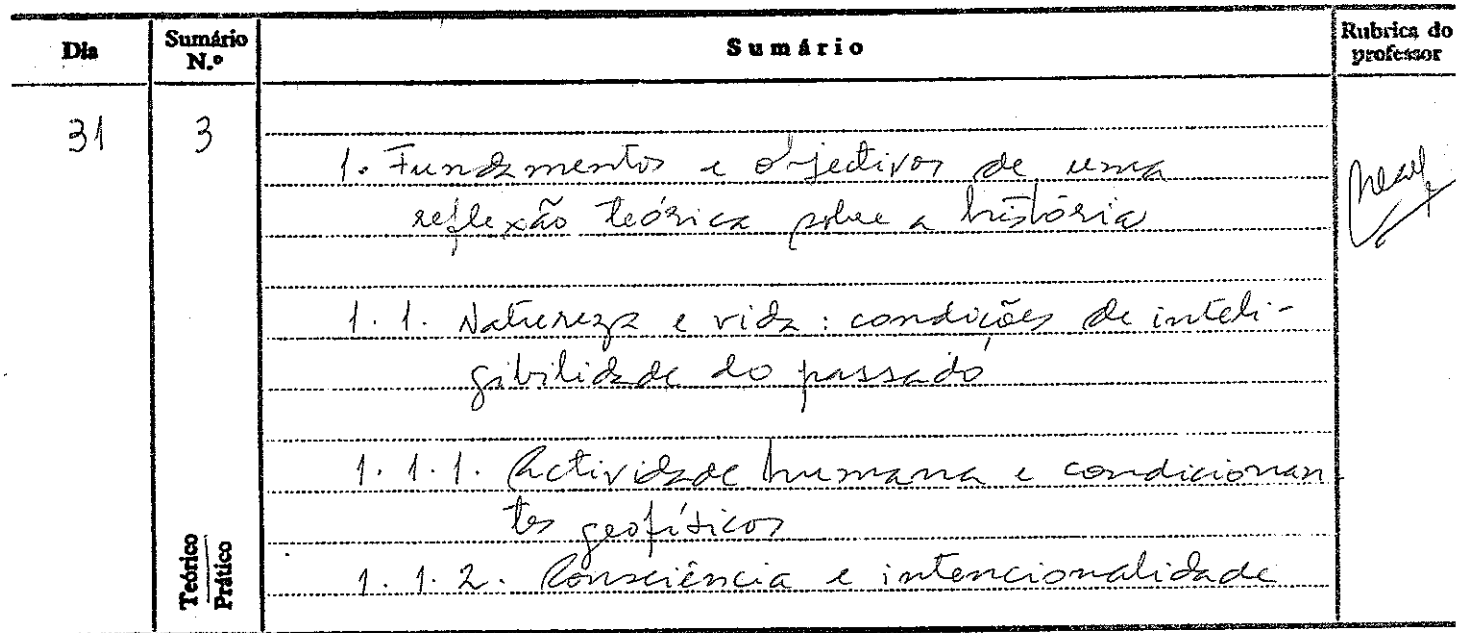 Dia Sumário N.º Sumário Rubrica do professor
31 3
1. Fundamentos e objectivos de uma
reflexão teórica sobre a história
1.1. Natureza e vida: condições de inteli-
gibilidade do passado
1.1.1. Actividade humana e condicionan
tes geofísicos
1.1.2. Consciência e intencionalidade
Teórico
Prático